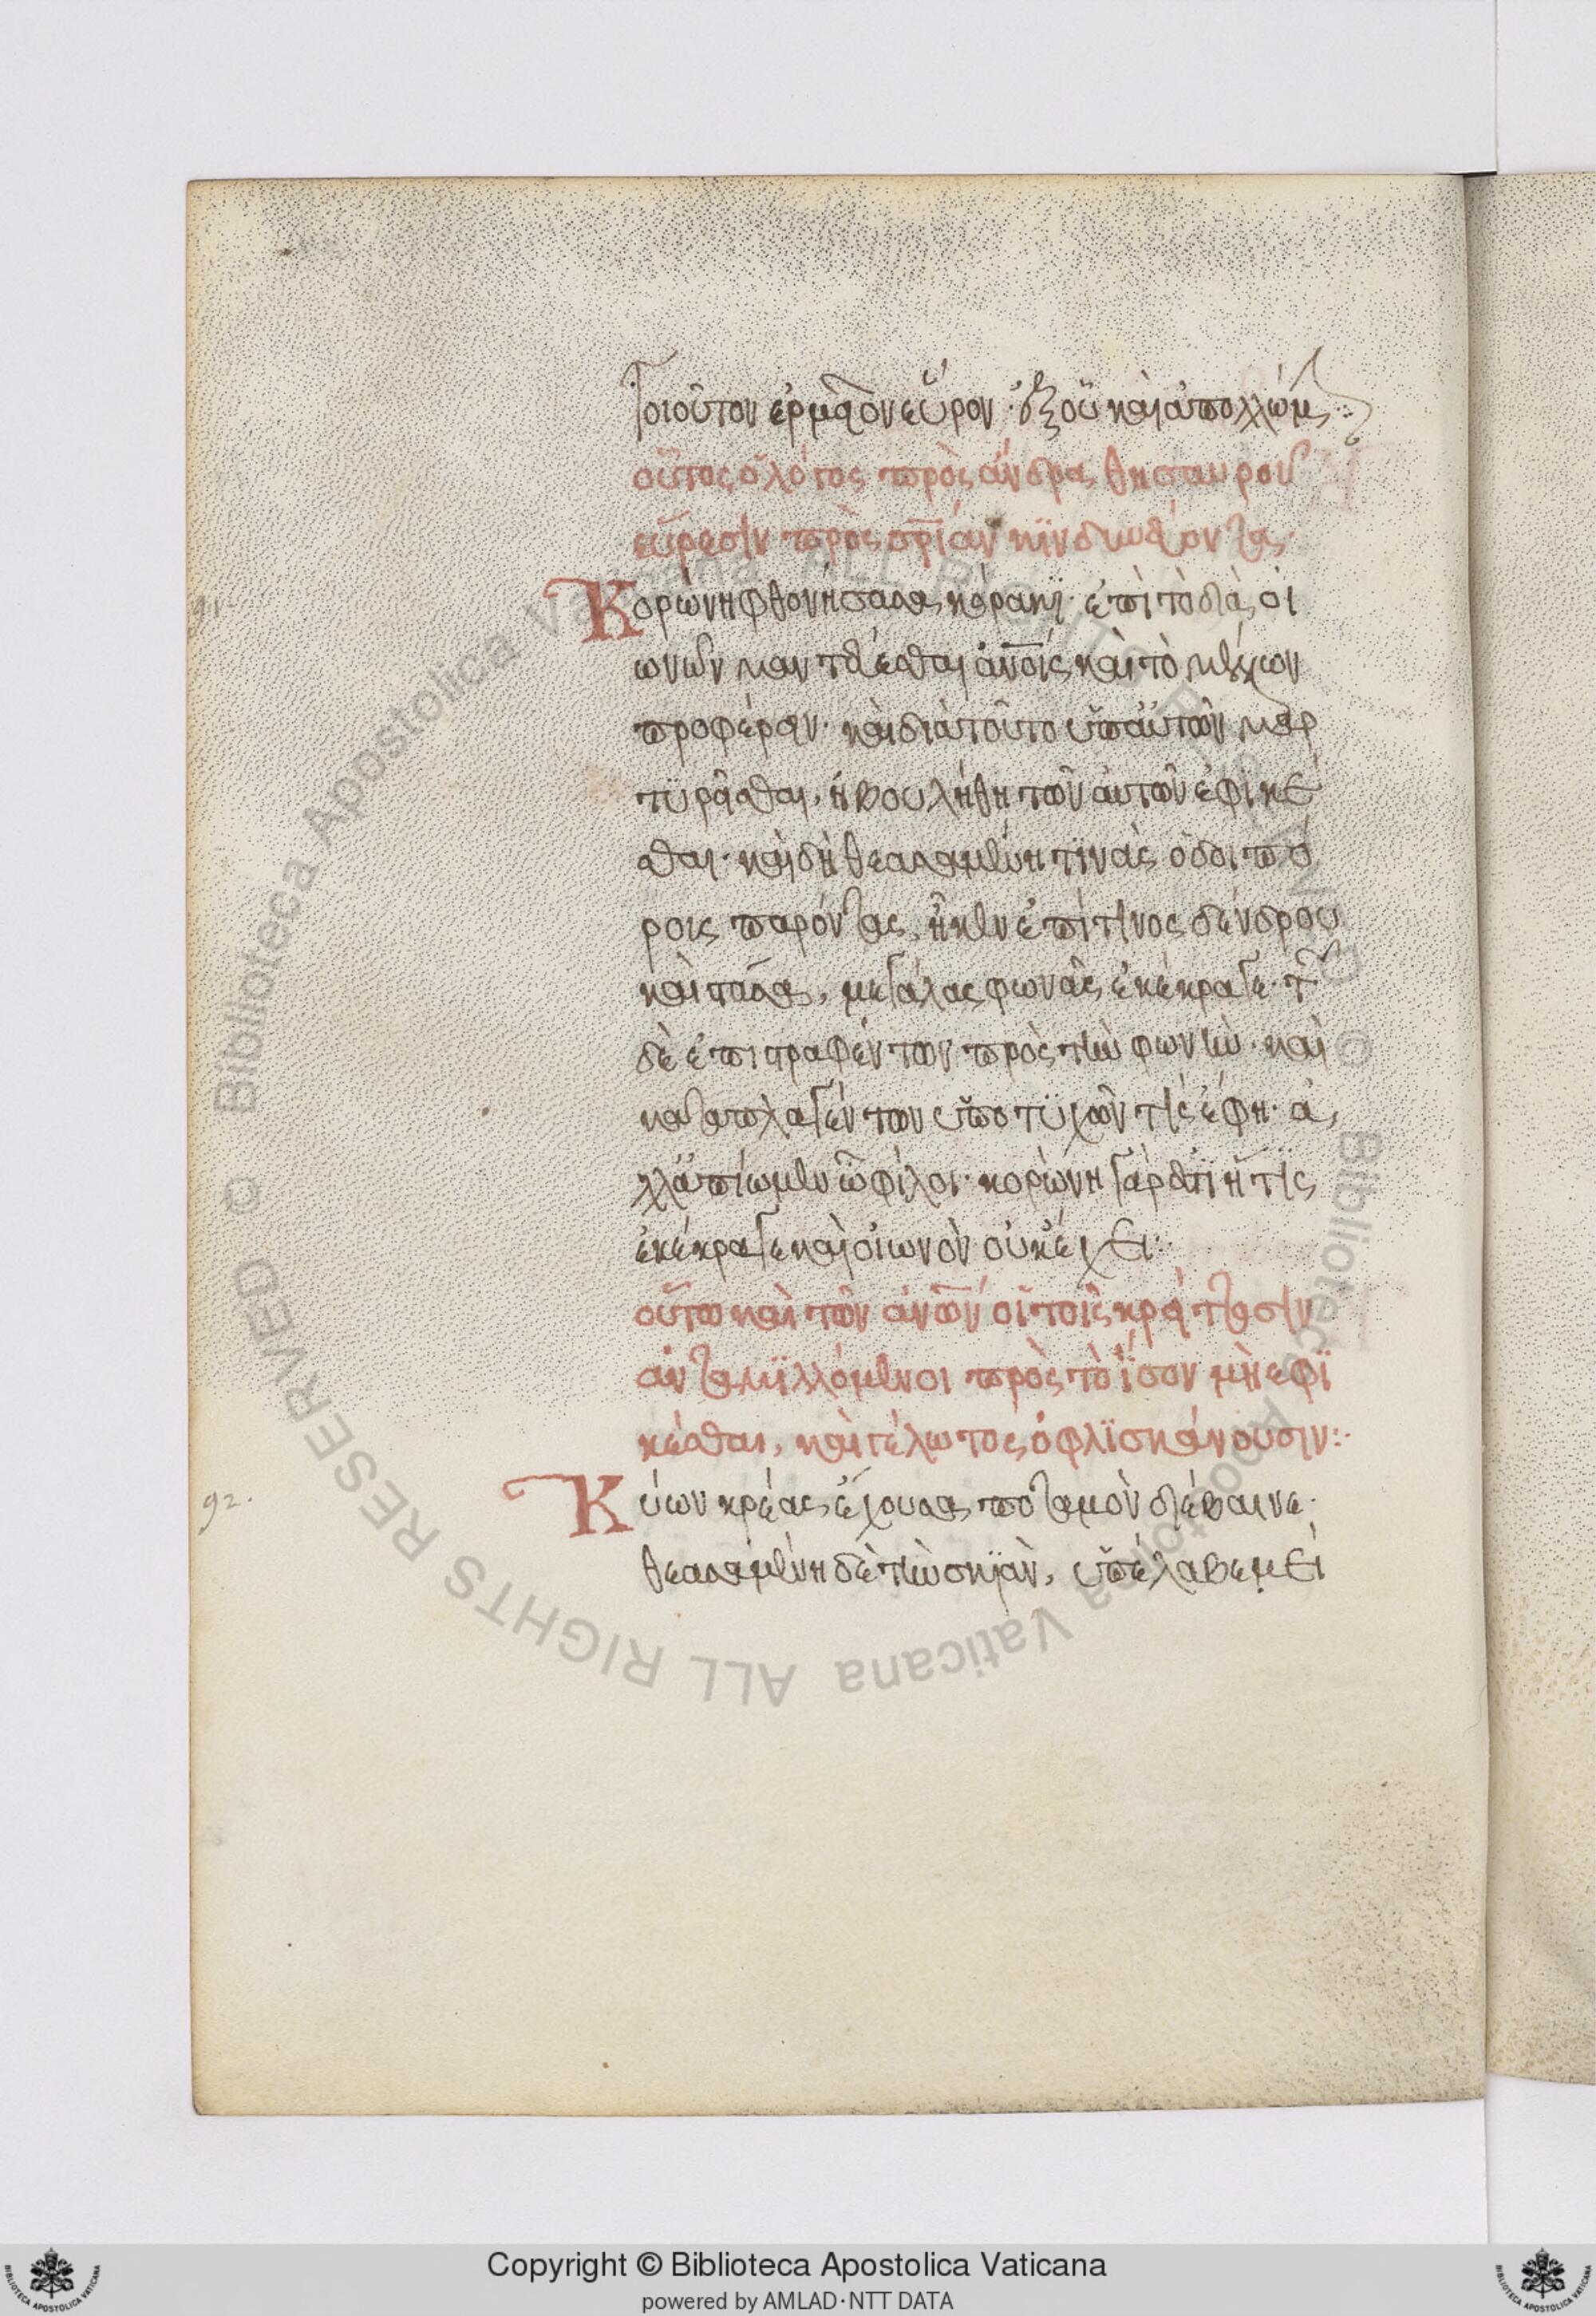 τοιοῦτον ἑρμαῖον εὗρον· ἐξ οὗ καὶ ἀπολλώμ(αι):
οὗτος ὁ λόγος πρὸς ἄνδρας θησαυροῦ
εὕρεσιν πρὸς
Κορώνη φθονήσασα κόρακϊ· ἐπὶ τὸ δϊὰ οἰ
ωνῶν μαντεύεσθαι ἀν̅οις καὶ τὸ μέλλον
προφέρειν· καὶ διὰ τοῦτο ὑπ' αὐτῶν μαρ
τυρεῖσθαι, ἠβουλήθη τῶν αὐτῶν ἐφικέ
σθαι· καὶ δὴ θεασαμένη τϊνὰς ὁδοιπό
ροις παρόντας, ἧκεν ἐπί τινος δένδρου
καὶ στᾶσα, μεγάλας φωνὰς ἐκέκραγε· τῶν
δὲ ἐπιστραφέντων πρὸς τὴν φωνὴν· καὶ
καταπλαγέντων ὑποτυχών τὶς ἔφη· ἀ
λλ' ἀπίωμεν ὦ φίλοι· κορώνη γάρ ἐστι ἥτϊς
ἐκέκραγε καὶ οἰωνὸν οὐκ ἔχει:
οὕτω καὶ τῶν ἀν̅ων οἱ τοῖς κρείττοσιν
ἀνταμϊλλόμενοι πρὸς τὸ ἴσον μὴ ἐφϊ
κέσθαι, καὶ γέλωτος ὀφλϊσκάνουσιν:
92.
Κύων κρέας ἔχουσα ποταμὸν διέβαινε·
θεασαμένη δὲ τὴν σκϊὰν, ὑπέλαβεμεί
© Biblioteca Apostolica Vaticana ALL RIGHTS RESERVED
Copyright © Biblioteca Apostolica Vaticana
powered by AMLAD·NTT DATA